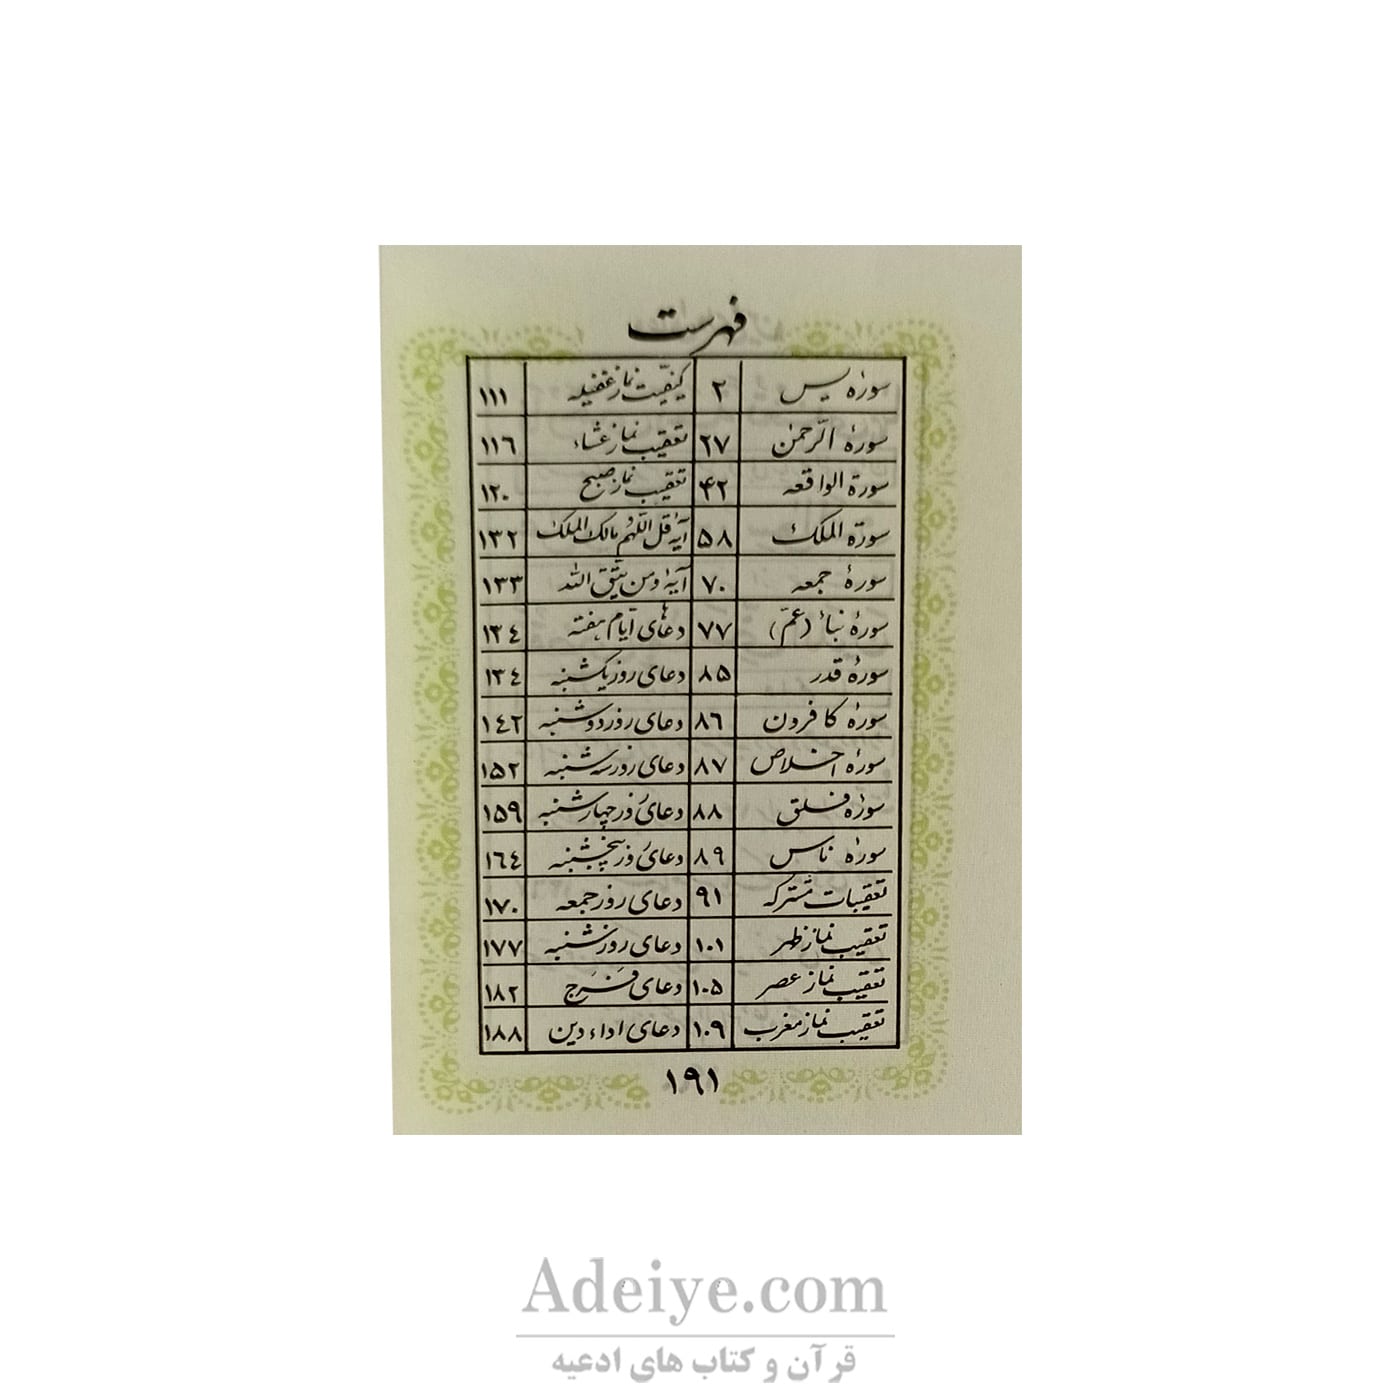 فهرست
سورهٔ یس ۲ کیفیّت نماز غفیله ۱۱۱
سورهٔ الرّحمن ۲۷ تعقیب نماز عشاء ۱۱٦
سورة الواقعه ۴۲ تعقیب نماز صبح ۱۲۰
سورة الملك ۵۸ آیهٔ قل اللّهم مالك الملك ۱۳۲
سورهٔ جمعه ۷۰ آیهٔ ومن یتّق الله ۱۳۳
سورهٔ نبأ (عمّ) ۷۷ دعاهای ایّام هفته ۱۳٤
سورهٔ قدر ۸۵ دعای روز یکشنبه ۱۳٤
سورهٔ کافرون ۸٦ دعای روز دوشنبه ۱٤۲
سورهٔ اخلاص ۸۷ دعای روز سه شنبه ۱۵۲
سورهٔ فلق ۸۸ دعای روز چهارشنبه ۱۵۹
سورهٔ ناس ۸۹ دعای روز پنجشنبه ۱٦٤
تعقیبات مشترکه ۹۱ دعای روز جمعه ۱۷۰
تعقیب نماز ظهر ۱۰۱ دعای روز شنبه ۱۷۷
تعقیب نماز عصر ۱۰۵ دعای فَرَج ۱۸۲
تعقیب نماز مغرب ۱۰۹ دعای اداء دین ۱۸۸
۱۹۱
Adeiye.com
قرآن و کتاب های ادعیه